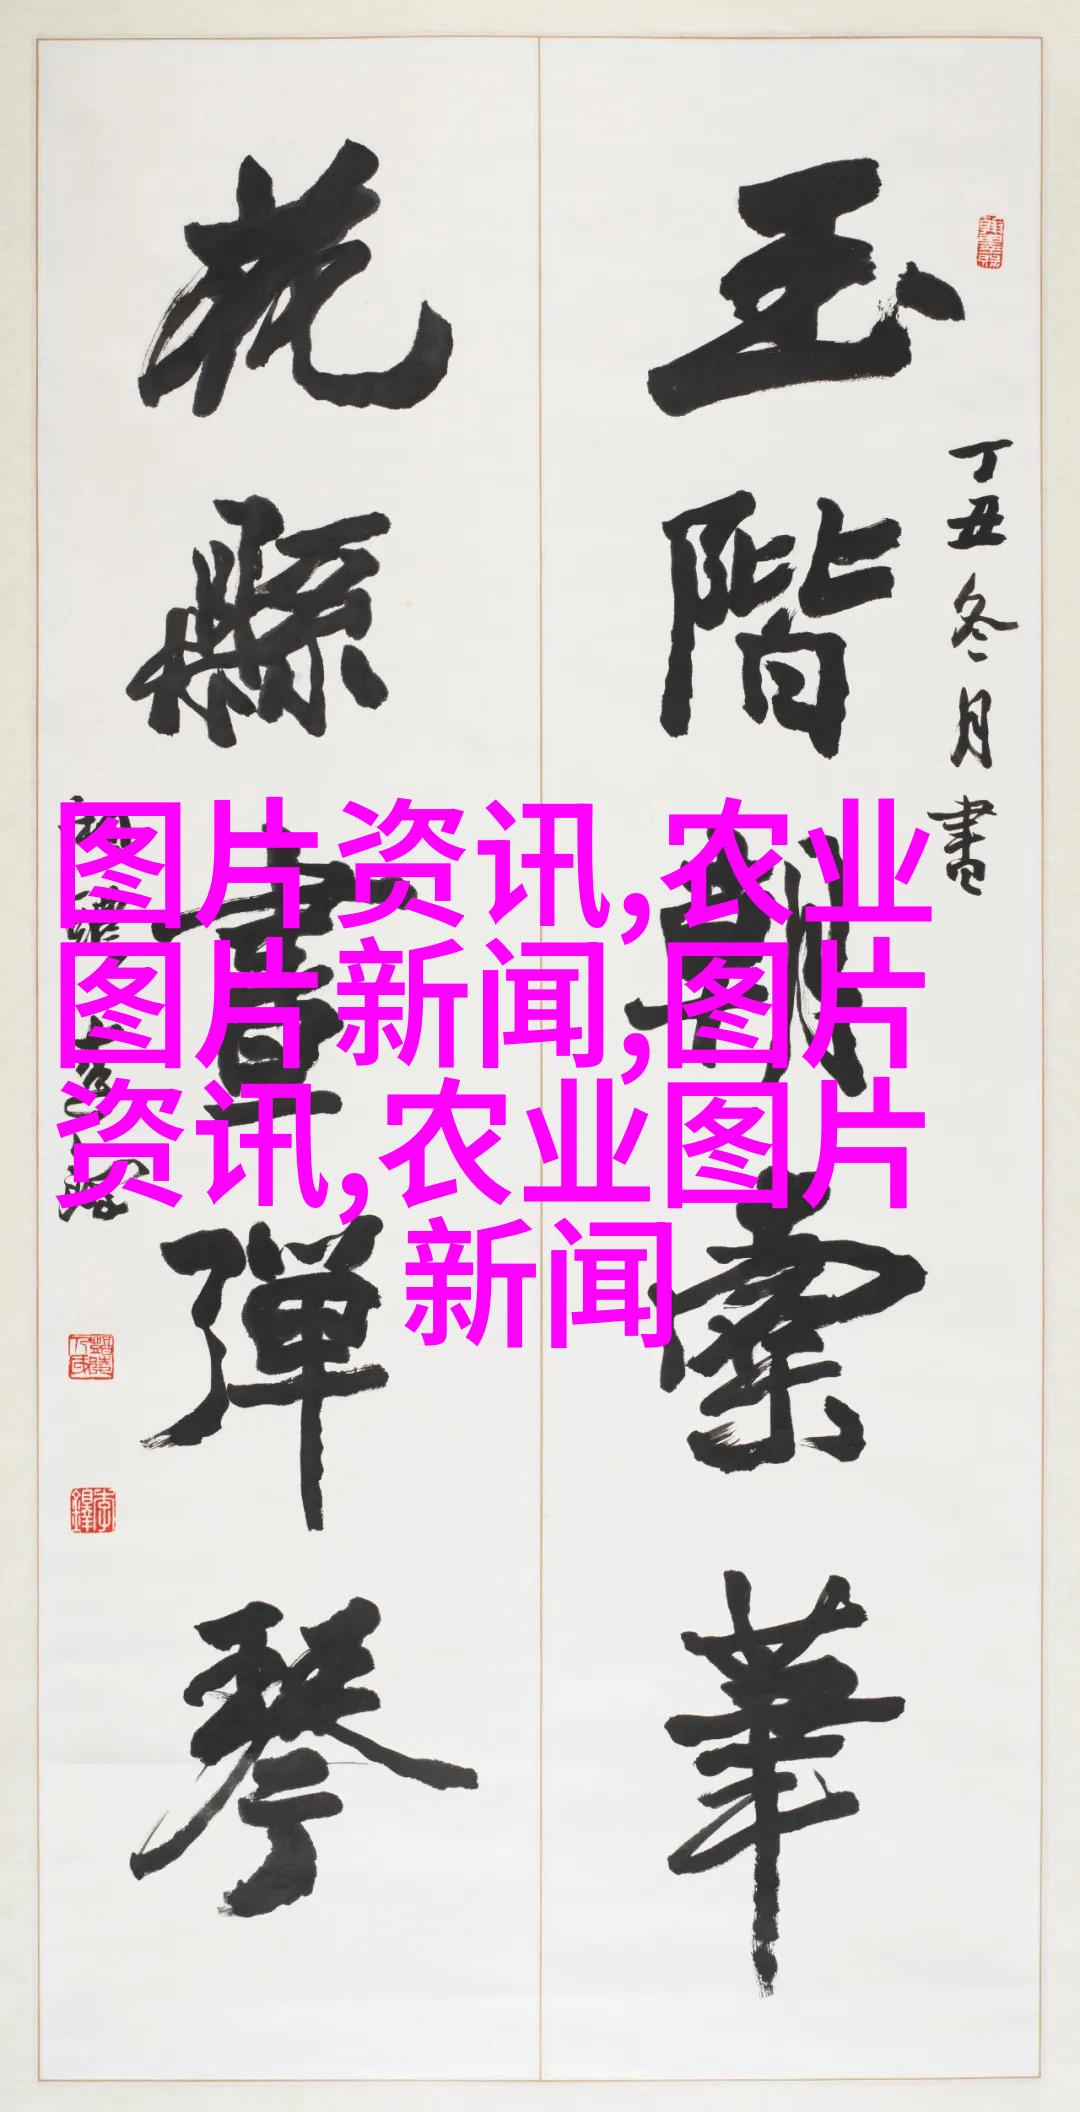 玉階朝彙華
丁丑冬月書
花縣書彈琴
图片资讯,农业
图片新闻,图片
资讯,农业图片
新闻